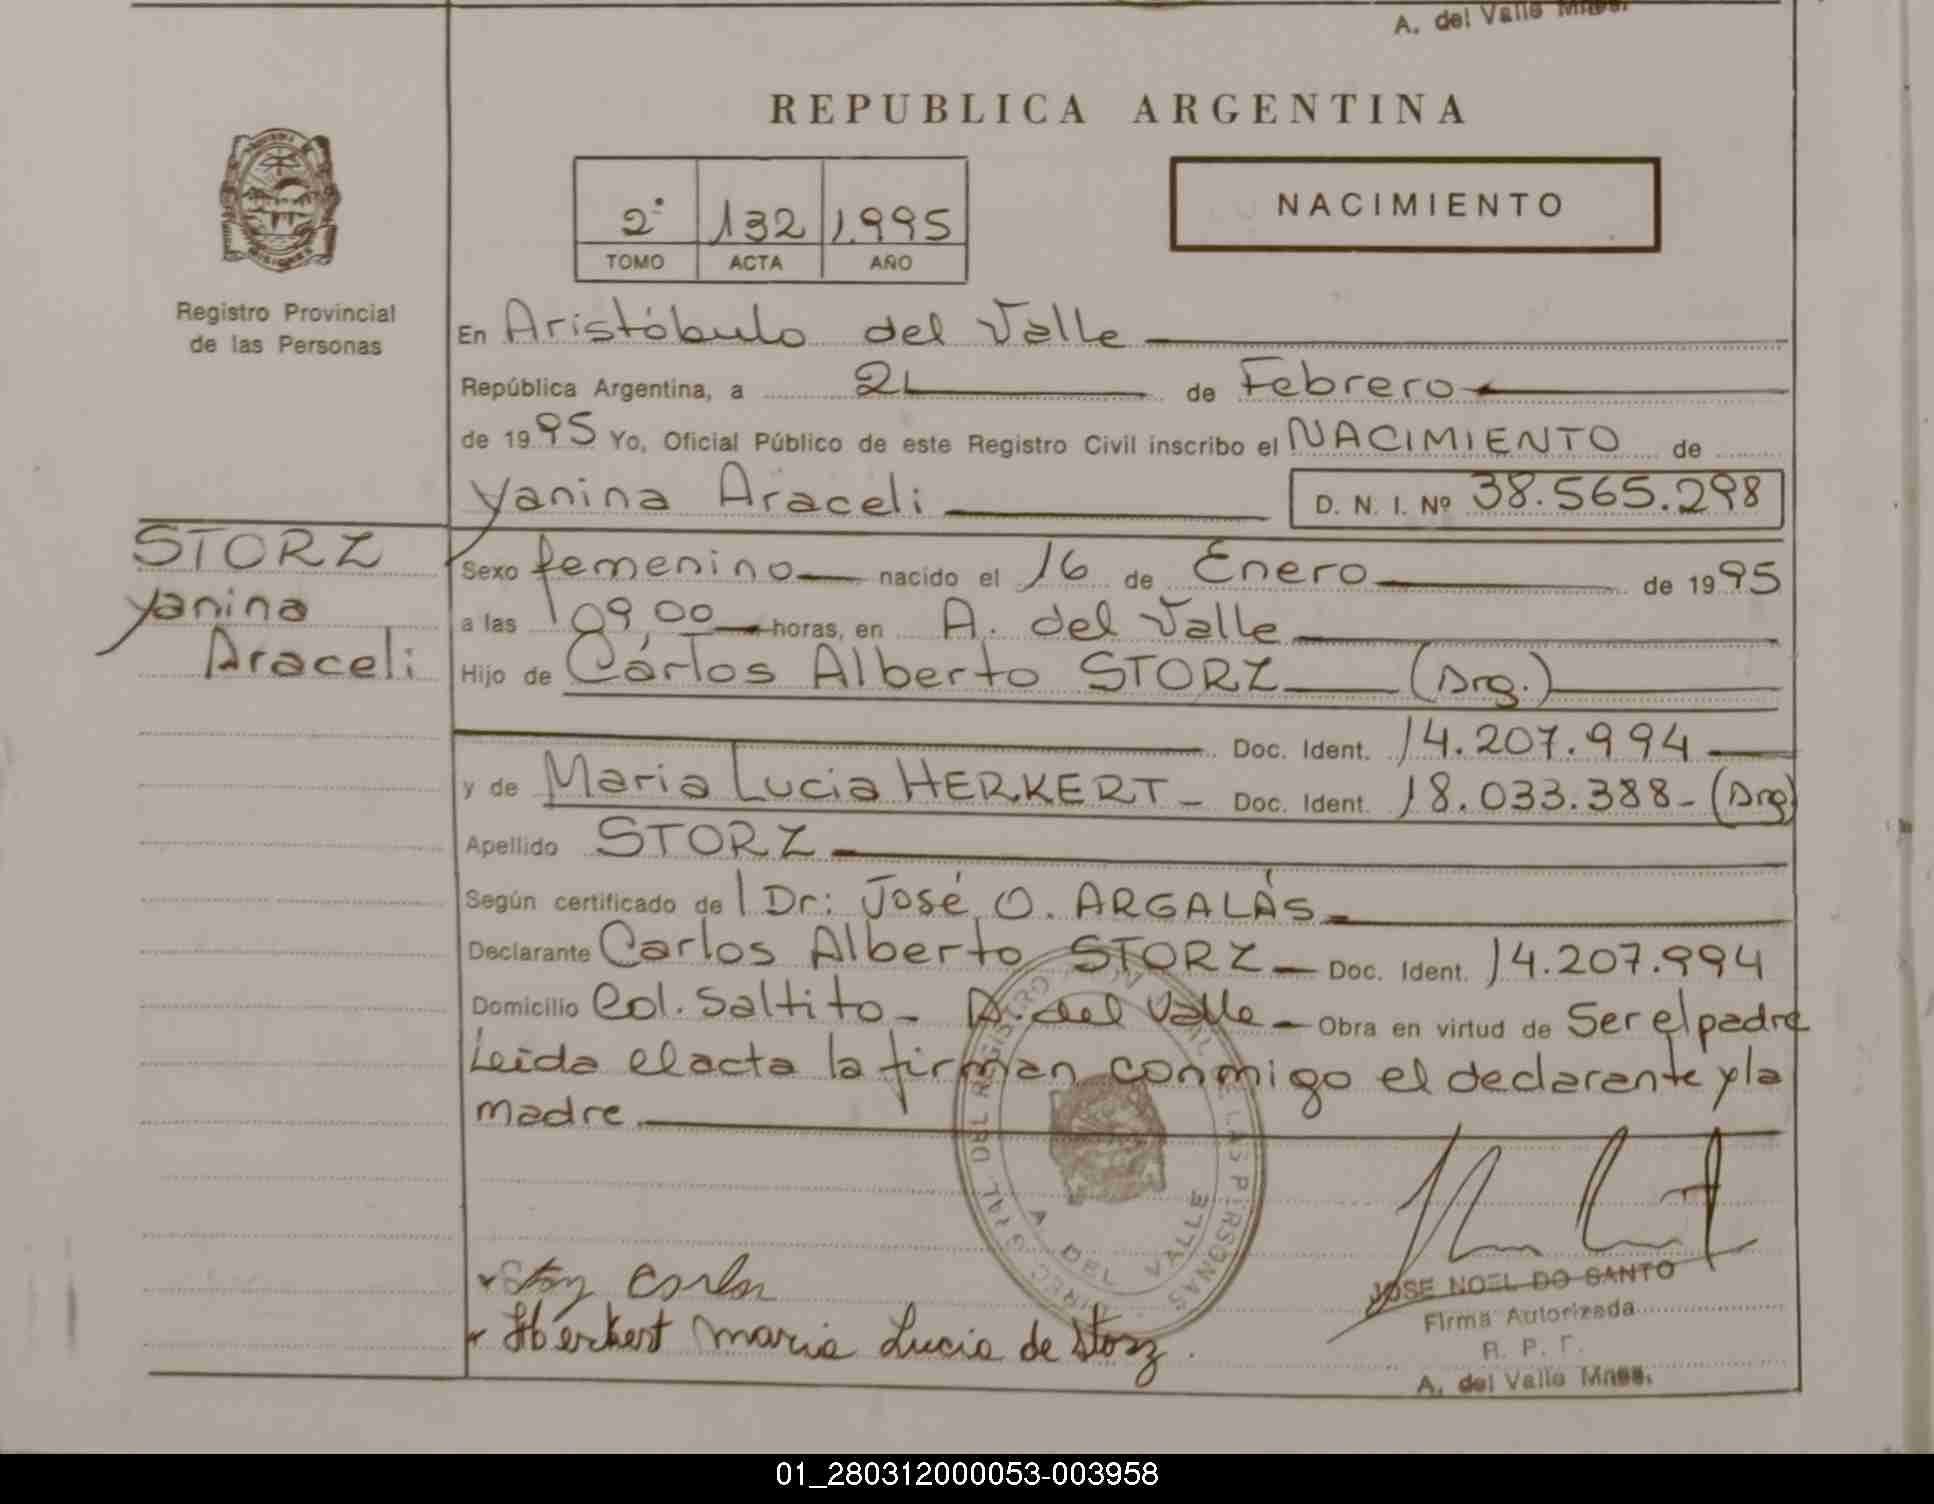 A. del Valle Mnes.
REPUBLICA ARGENTINA
NACIMIENTO
2° 132 1.995
TOMO ACTA AÑO
Registro Provincial
de las Personas
En Aristóbulo del Valle
República Argentina, a 21 de Febrero
de 1995 Yo, Oficial Público de este Registro Civil inscribo el NACIMIENTO de
Yanina Araceli D. N. I. Nº 38.565.298
STORZ
Yanina
Araceli
Sexo femenino nacido el 16 de Enero de 1995
a las 09,00 horas, en A. del Valle
Hijo de Cárlos Alberto STORZ (Arg.)
Doc. Ident. 14.207.994
y de Maria Lucia HERKERT - Doc. Ident. 18.033.388- (Arg)
Apellido STORZ
Según certificado de Dr: José O. ARGALÁS
Declarante Carlos Alberto STORZ - Doc. Ident. 14.207.994
Domicilio Col. Saltito - A. del Valle - Obra en virtud de Ser el padre
Leida el acta la firman conmigo el declarante y la
madre
DIREC. GRAL DEL REGISTRO DE LAS PERSONAS
A. DEL VALLE
Storz Carlos
Herkert Maria Lucia de Storz.
JOSE NOEL DO SANTO
Firma Autorizada
R. P. P.
A. del Valle Mnes.
01_280312000053-003958